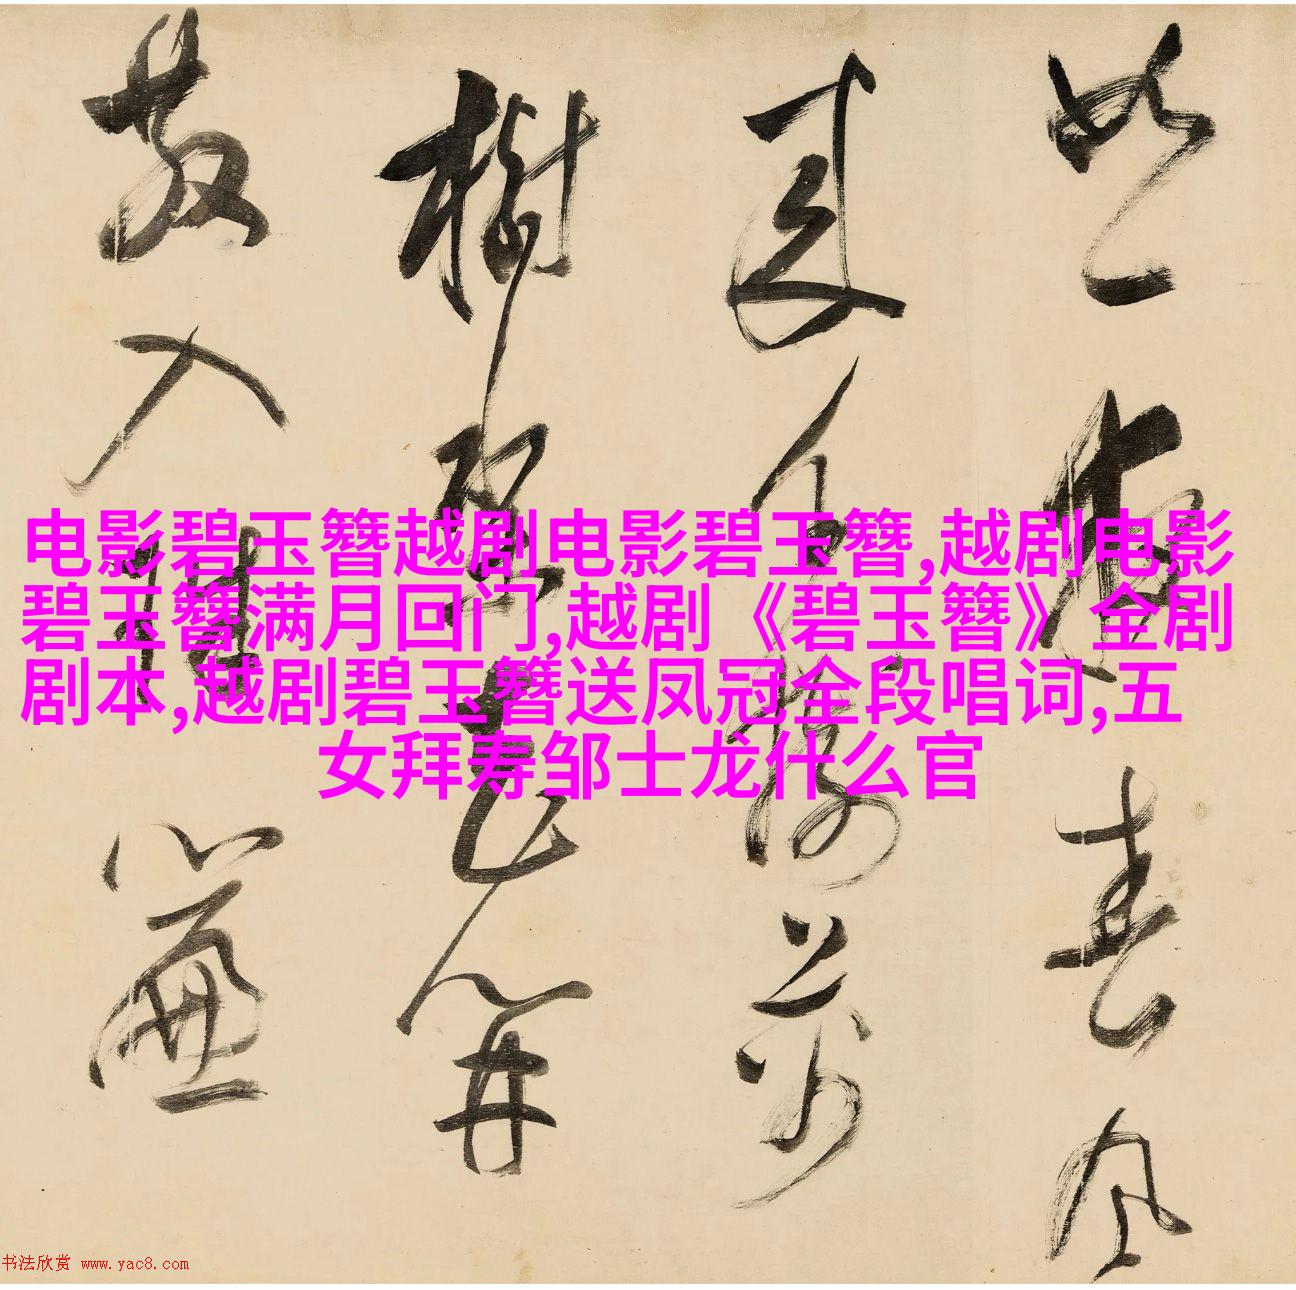 如一夜春風
来千樹萬
樹梨花開
散入珠簾
电影碧玉簪越剧电影碧玉簪,越剧电影
碧玉簪满月回门,越剧《碧玉簪》全剧
剧本,越剧碧玉簪送凤冠全段唱词,五
女拜寿邹士龙什么官
书法欣赏 www.yac8.com